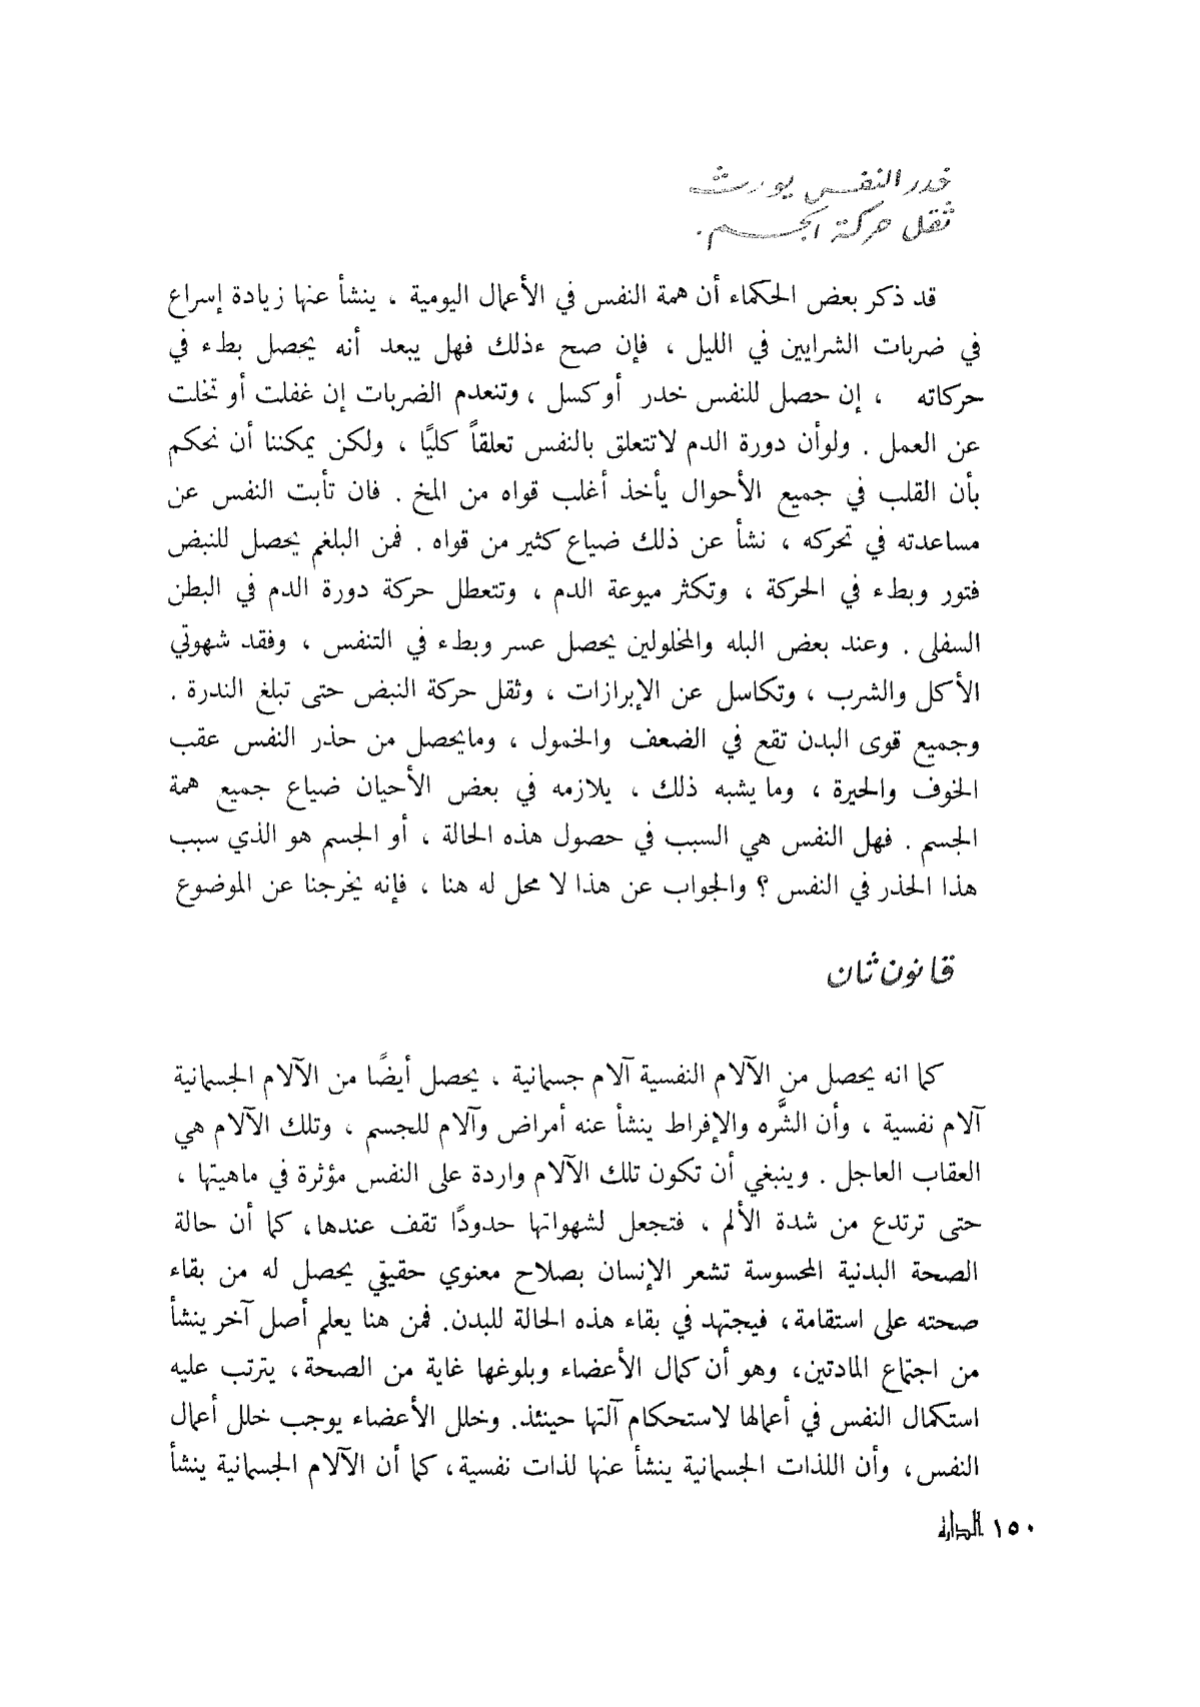 خدر النفس يورث
ثقل حركة الجسم .
قد ذكر بعض الحكماء أن همة النفس في الأعمال اليومية ، ينشأ عنها زيادة إسراع
في ضربات الشرايين في الليل ، فإن صح ءذلك فهل يبعد أنه يحصل بطء في
حركاته ، إن حصل للنفس خدر أو كسل ، وتنعدم الضربات إن غفلت أو تخلت
عن العمل . ولوأن دورة الدم لاتتعلق بالنفس تعلقاً كليًا ، ولكن يمكننا أن نحكم
بأن القلب في جميع الأحوال يأخذ أغلب قواه من المخ . فان تأبت النفس عن
مساعدته في تحركه ، نشأ عن ذلك ضياع كثير من قواه . فمن البلغم يحصل للنبض
فتور وبطء في الحركة ، وتكثر ميوعة الدم ، وتتعطل حركة دورة الدم في البطن
السفلى . وعند بعض البله والمخلولين يحصل عسر وبطء في التنفس ، وفقد شهوتي
الأكل والشرب ، وتكاسل عن الإبرازات ، وثقل حركة النبض حتى تبلغ الندرة .
وجميع قوى البدن تقع في الضعف والخمول ، ومايحصل من حذر النفس عقب
الخوف والحيرة ، وما يشبه ذلك ، يلازمه في بعض الأحيان ضياع جميع همة
الجسم . فهل النفس هي السبب في حصول هذه الحالة ، أو الجسم هو الذي سبب
هذا الحذر في النفس ؟ والجواب عن هذا لا محل له هنا ، فإنه يخرجنا عن الموضوع
قانون ثان
كما انه يحصل من الآلام النفسية آلام جسمانية ، يحصل أيضًا من الآلام الجسمانية
آلام نفسية ، وأن الشَّره والإفراط ينشأ عنه أمراض وآلام للجسم ، وتلك الآلام هي
العقاب العاجل . وينبغي أن تكون تلك الآلام واردة على النفس مؤثرة في ماهيتها ،
حتى ترتدع من شدة الألم ، فتجعل لشهواتها حدودًا تقف عندها، كما أن حالة
الصحة البدنية المحسوسة تشعر الإنسان بصلاح معنوي حقيقي يحصل له من بقاء
صحته على استقامة، فيجتهد في بقاء هذه الحالة للبدن. فمن هنا يعلم أصل آخر ينشأ
من اجتماع المادتين، وهو أن كمال الأعضاء وبلوغها غاية من الصحة، يترتب عليه
استكمال النفس في أعمالها لاستحكام آلتها حينئذ. وخلل الأعضاء يوجب خلل أعمال
النفس، وأن اللذات الجسمانية ينشأ عنها لذات نفسية، كما أن الآلام الجسمانية ينشأ
١٥٠ الدارة